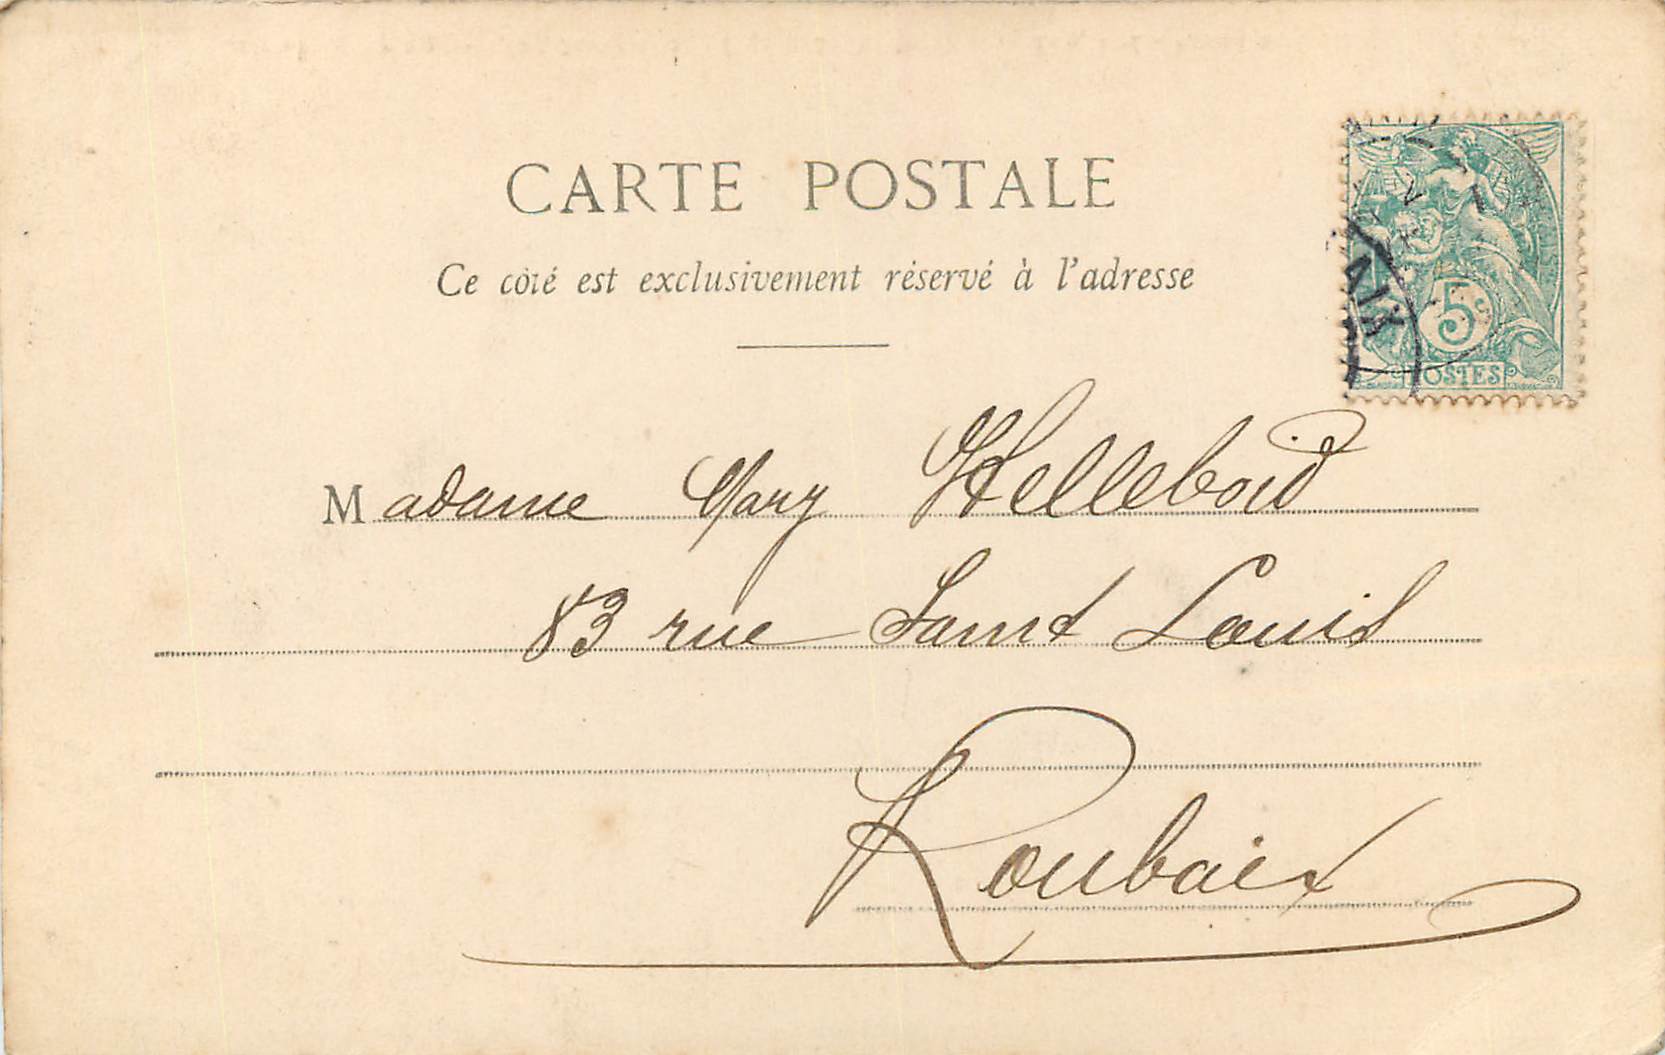 CARTE POSTALE
Ce côté est exclusivement réservé à l'adresse
5c
POSTES
AIX
Madame Mary Helleboid
83 rue Saint Louis
Roubaix